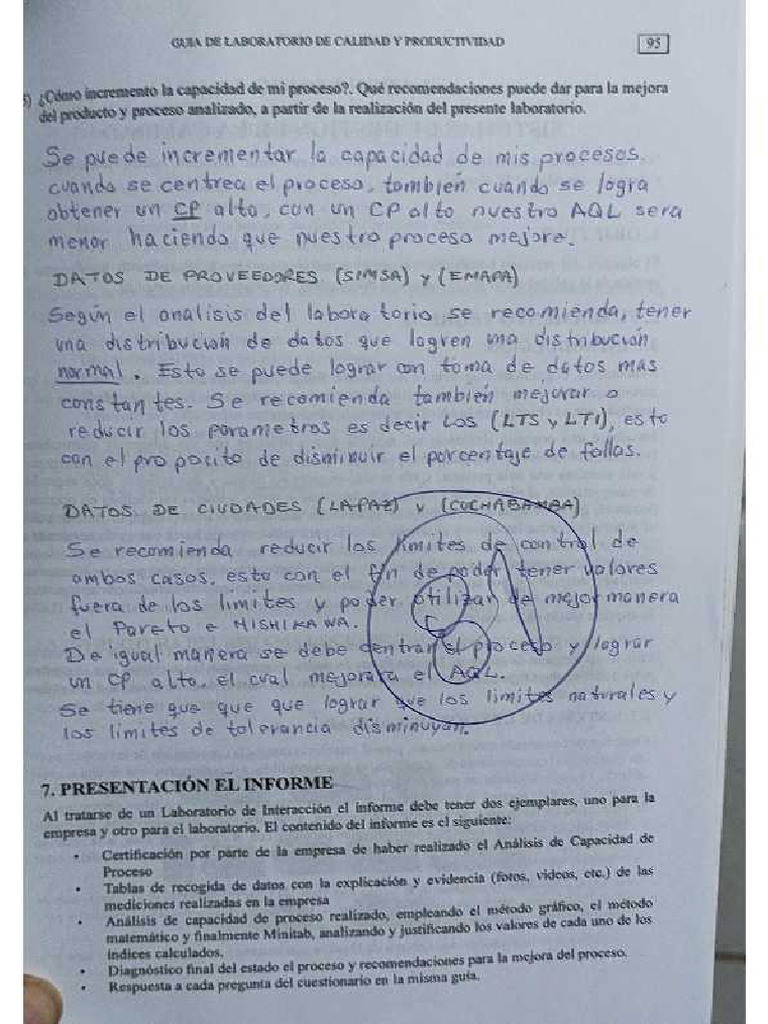 GUIA DE LABORATORIO DE CALIDAD Y PRODUCTIVIDAD
95
5) ¿Cómo incremento la capacidad de mi proceso?. Qué recomendaciones puede dar para la mejora
del producto y proceso analizado, a partir de la realización del presente laboratorio.
Se puede incrementar la capacidad de mis procesos.
cuando se centrea el proceso, también cuando se logra
obtener un CP alto, con un CP alto nuestro AQL sera
menor haciendo que nuestro proceso mejore.
DATOS DE PROVEEDORES (SIMSA) y (EMAPA)
Según el analisis del laboratorio se recomienda, tener
una distribución de datos que logren una distribución
normal. Esto se puede lograr con toma de datos mas
constantes. Se recomienda también mejorar o
reducir los parametros es decir Los (LTS y LTI), esto
con el proposito de disminuir el porcentaje de fallas.
DATOS DE CIUDADES (LA PAZ) y (COCHABAMBA)
Se recomienda reducir los limites de control de
ambos casos, esto con el fin de poder tener valores
fuera de los limites y poder utilizar de mejor manera
el Pareto e HISHIKAWA.
De igual manera se debe centrar el proceso y lograr
un CP alto, el cual mejorara el AQL.
Se tiene que que que lograr que los limites naturales y
los limites de tolerancia disminuyan.
7. PRESENTACIÓN EL INFORME
Al tratarse de un Laboratorio de Interacción el informe debe tener dos ejemplares, uno para la
empresa y otro para el laboratorio. El contenido del informe es el siguiente:
• Certificación por parte de la empresa de haber realizado el Análisis de Capacidad de
Proceso
• Tablas de recogida de datos con la explicación y evidencia (fotos, videos, etc.) de las
mediciones realizadas en la empresa
• Análisis de capacidad de proceso realizado, empleando el método gráfico, el método
matemático y finalmente Minitab, analizando y justificando los valores de cada uno de los
índices calculados.
• Diagnóstico final del estado el proceso y recomendaciones para la mejora del proceso.
• Respuesta a cada pregunta del cuestionario en la misma guía.